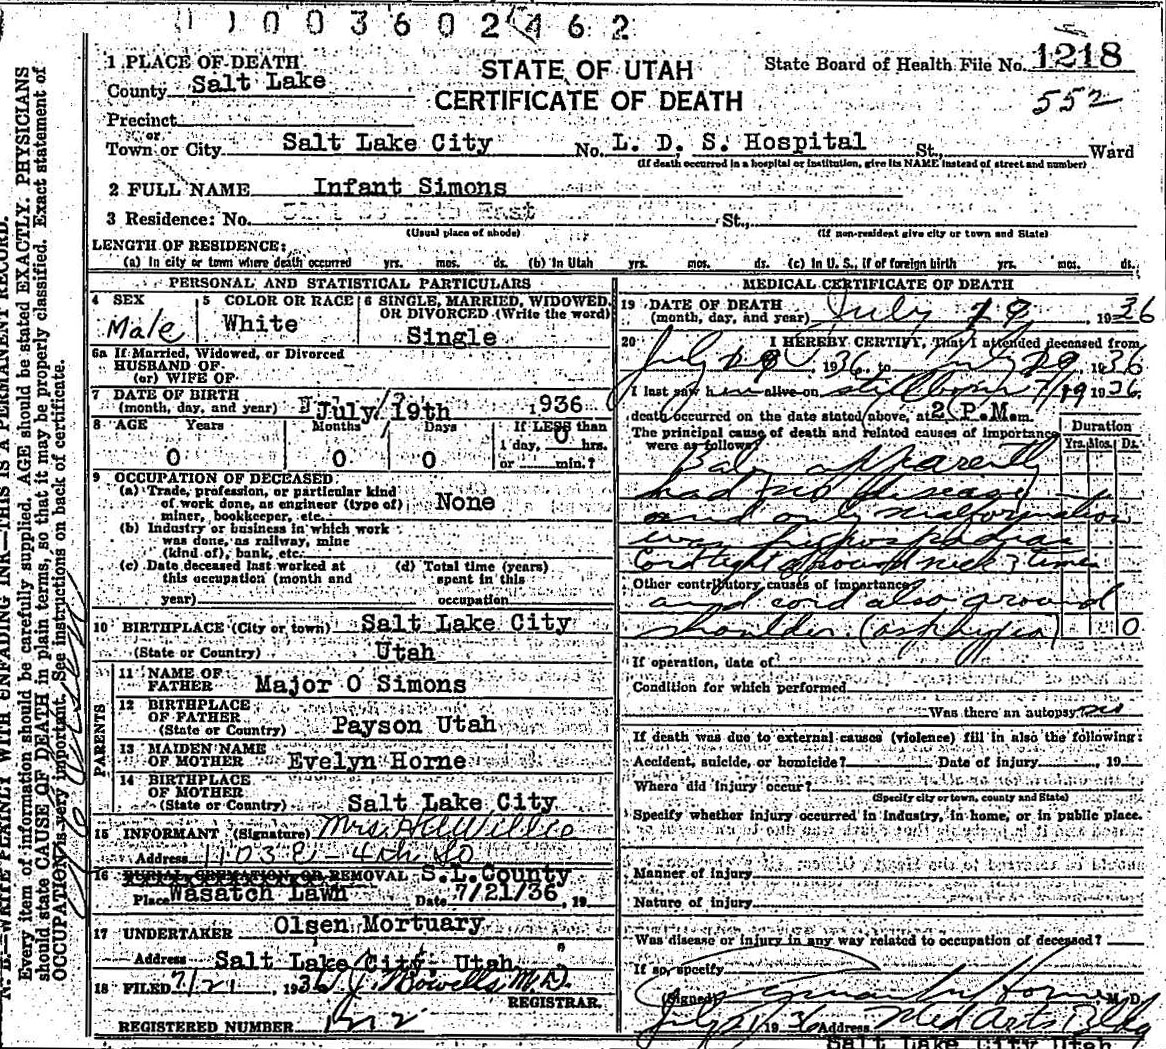 1003602462
1 PLACE OF DEATH
County Salt Lake
STATE OF UTAH
CERTIFICATE OF DEATH
State Board of Health File No. 1218
552
Precinct
or
Town or City Salt Lake City No. L. D. S. Hospital St., Ward
(If death occurred in a hospital or institution, give its NAME instead of street and number)
2 FULL NAME Infant Simons
3 Residence: No. East St.,
(Usual place of abode) (If non-resident give city or town and State)
LENGTH OF RESIDENCE:
(a) In city or town where death occurred yrs. mos. ds. (b) In Utah yrs. mos. ds. (c) In U. S., if of foreign birth yrs. mos. ds.
PERSONAL AND STATISTICAL PARTICULARS
4 SEX
Male
5 COLOR OR RACE
White
6 SINGLE, MARRIED, WIDOWED,
OR DIVORCED (Write the word)
Single
6a If Married, Widowed, or Divorced
HUSBAND OF
(or) WIFE OF
7 DATE OF BIRTH
(month, day, and year) July 19th 1936
8 AGE Years Months Days If LESS than
1 day, 0 hrs.
0 0 0 or min.?
9 OCCUPATION OF DECEASED
(a) Trade, profession, or particular kind
of work done, as engineer (type of) None
miner, bookkeeper, etc.
(b) Industry or business in which work
was done, as railway, mine
(kind of), bank, etc.
(c) Date deceased last worked at (d) Total time (years)
this occupation (month and spent in this
year) occupation
10 BIRTHPLACE (City or town) Salt Lake City
(State or Country) Utah
PARENTS
11 NAME OF
FATHER Major O Simons
12 BIRTHPLACE
OF FATHER
(State or Country) Payson Utah
13 MAIDEN NAME
OF MOTHER Evelyn Horne
14 BIRTHPLACE
OF MOTHER
(State or Country) Salt Lake City
15 INFORMANT (Signature) Mrs.
Address 1103 E - 4th So
16 BURIAL CREMATION OR REMOVAL S.L.County
Place Wasatch Lawn Date 7/21/36, 19
17 UNDERTAKER Olsen Mortuary
Address Salt Lake City, Utah
18 FILED 7/21, 1936 M.D.
REGISTRAR.
REGISTERED NUMBER
MEDICAL CERTIFICATE OF DEATH
19 DATE OF DEATH
(month, day, and year) July 19 1936
20 I HEREBY CERTIFY, That I attended deceased from
July 19 1936, to July 19 1936
I last saw him alive on stillborn 7/19 1936,
death occurred on the date stated above, at 2 P.M. m.
The principal cause of death and related causes of importance
were as follows:
Duration
Yrs. Mos. Ds.
Baby apparently
had no disease
and only malformation
was hypospadias
Cord tight around neck 3 times
Other contributory causes of importance
and cord also around
shoulder. (asphyxia) 0
If operation, date of
Condition for which performed
Was there an autopsy no
If death was due to external causes (violence) fill in also the following:
Accident, suicide, or homicide? Date of injury , 19
Where did injury occur?
(Specify city or town, county and State)
Specify whether injury occurred in industry, in home, or in public place.
Manner of injury
Nature of injury
Was disease or injury in any way related to occupation of deceased?
If so, specify
(Signed) Horne M. D.
July 21 1936 Address Med Arts Bldg
Salt Lake City Utah
N. B.—WRITE PLAINLY WITH UNFADING INK—THIS IS A PERMANENT RECORD.
Every item of information should be carefully supplied. AGE should be stated EXACTLY. PHYSICIANS
should state CAUSE OF DEATH in plain terms, so that it may be properly classified. Exact statement of
OCCUPATION is very important. See instructions on back of certificate.